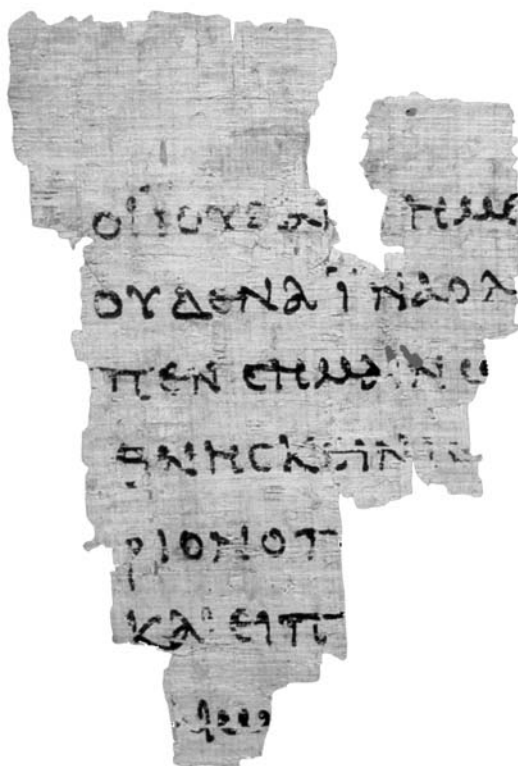 ΟΙΪΟΥΔΑΙ ΗΜΕ
ΟΥΔΕΝΑΪΝΑΟΛ
ΠΕΝΣΗΜΑΙΝΩ
ΘΝΗΣΚΕΙΝΙΣ
ΡΙΟΝΟΠ
ΚΑΙΕΙΠ
ΑΙΩ